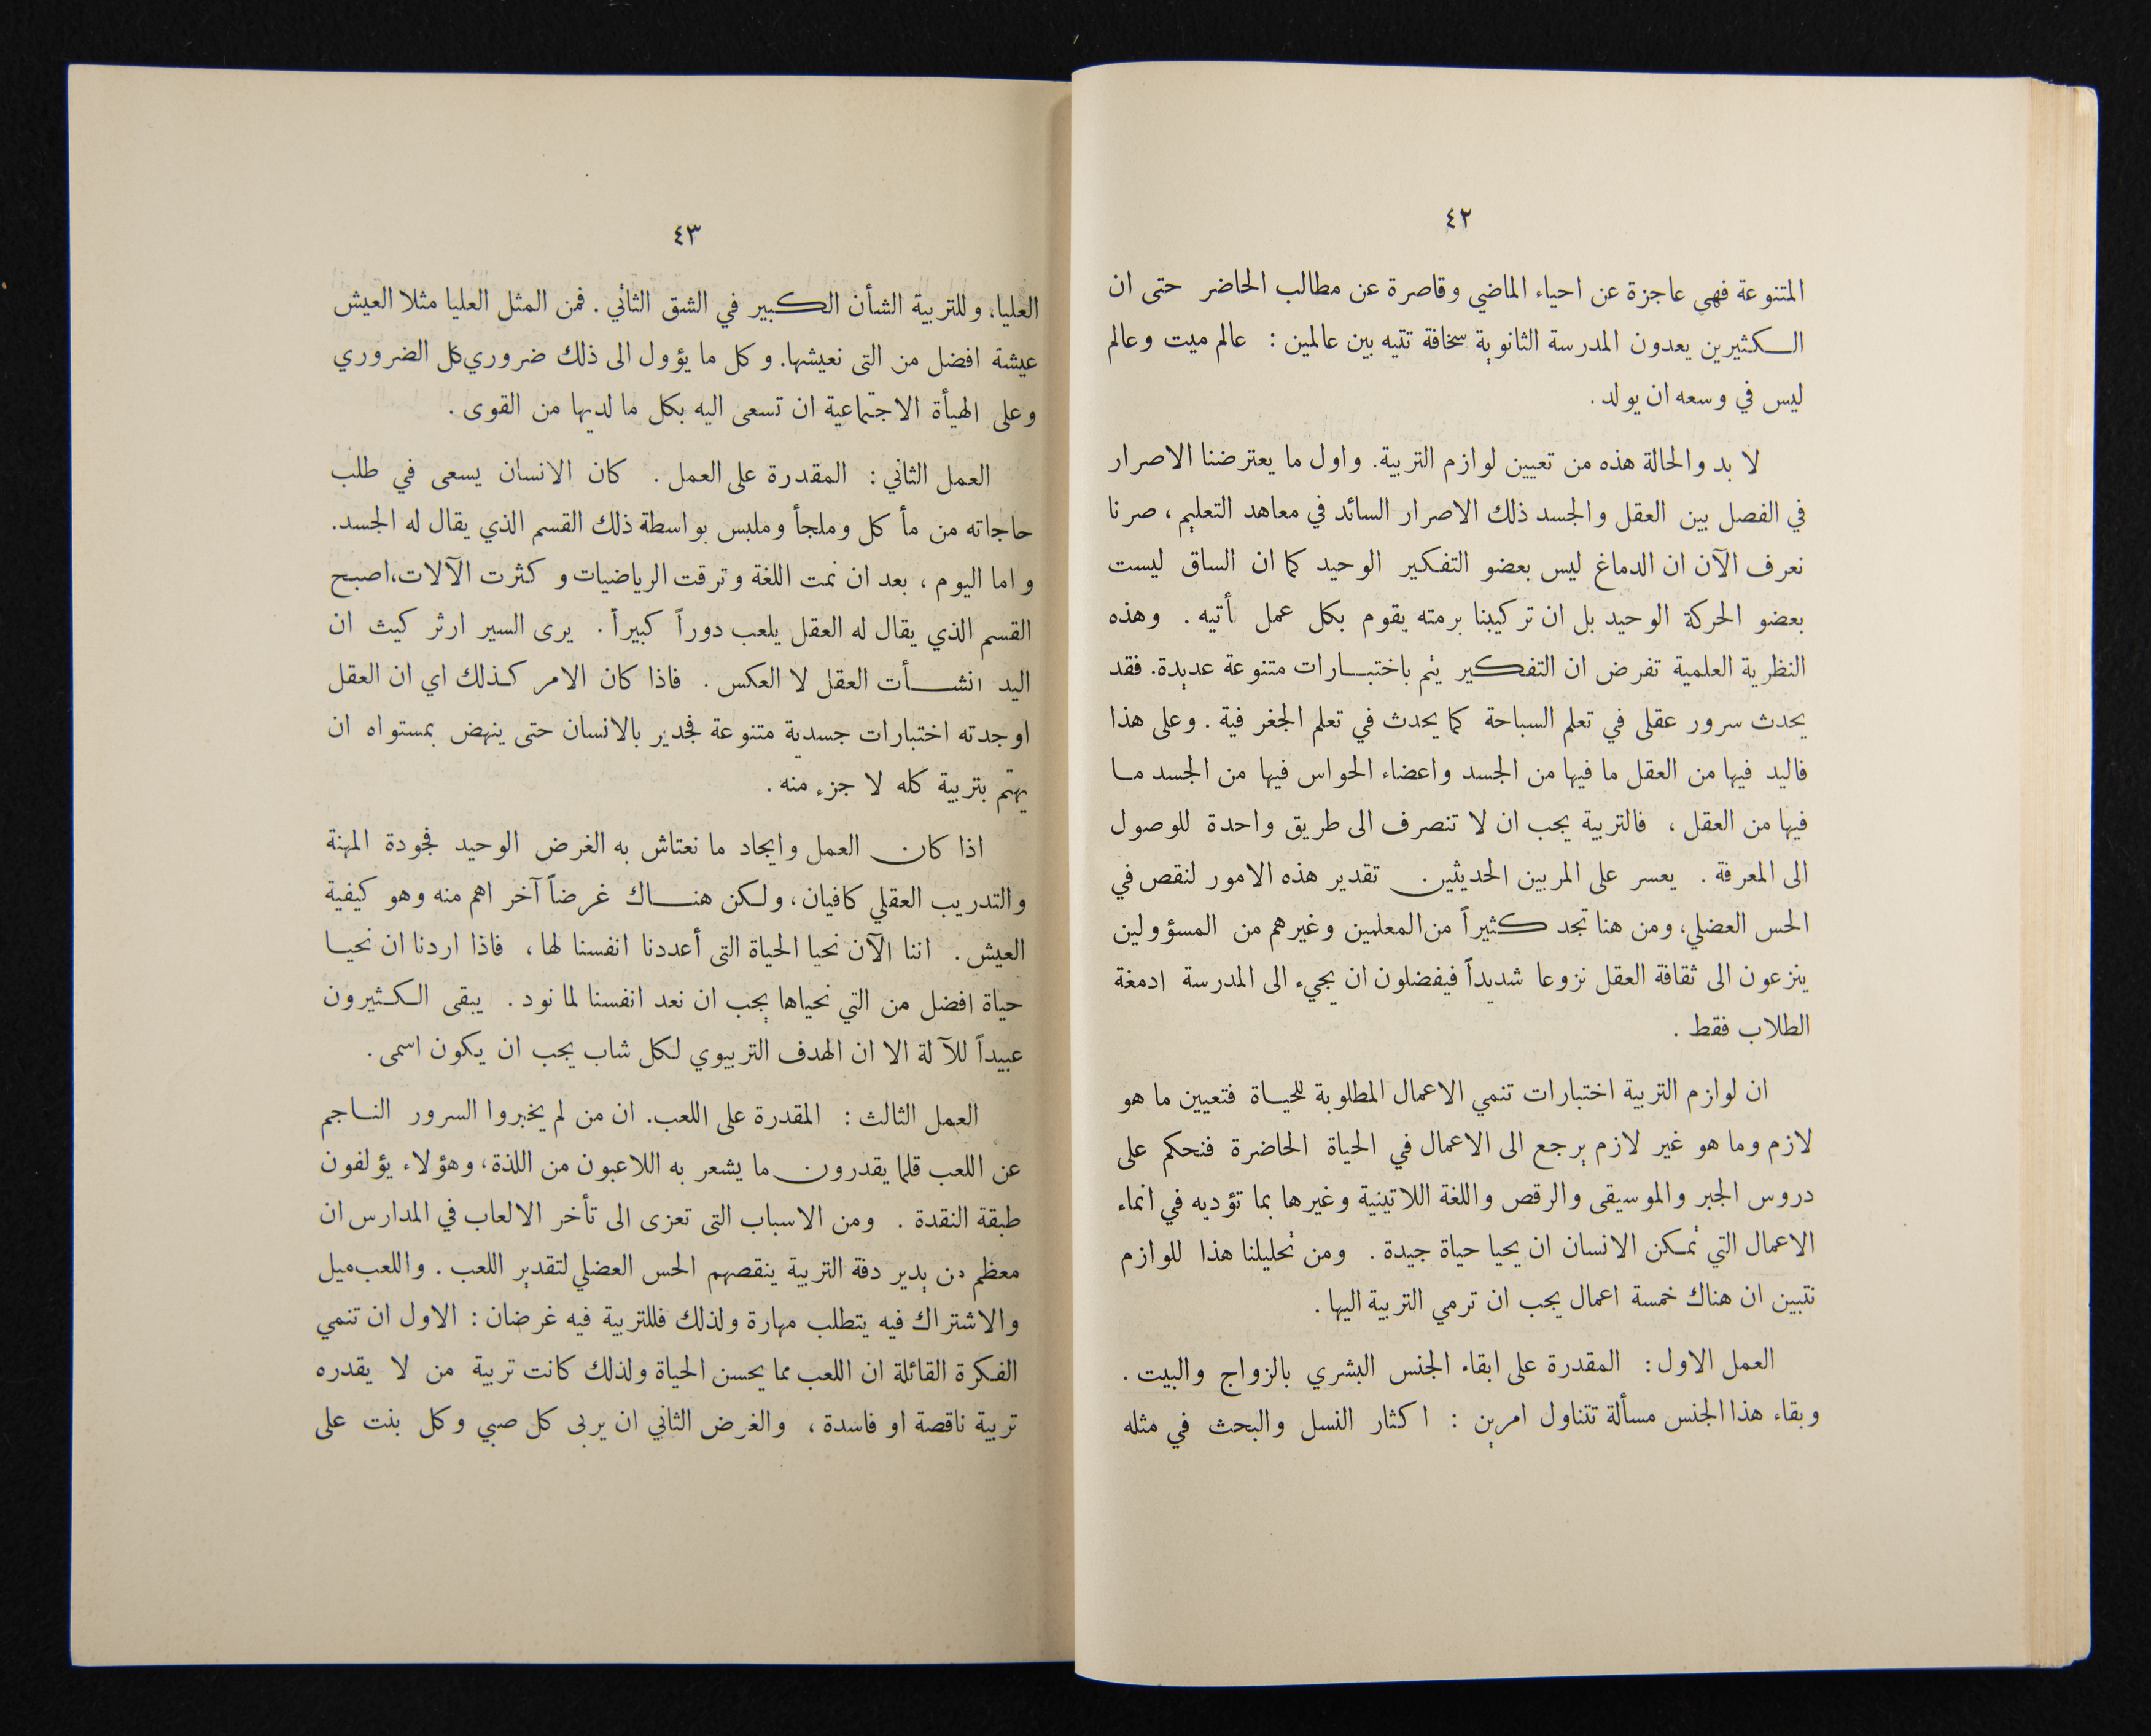 ٤٢
المتنوعة فهي عاجزة عن احياء الماضي وقاصرة عن مطالب الحاضر حتى ان
الكثيرين يعدون المدرسة الثانوية سخافة تتيه بين عالمين : عالم ميت وعالم
ليس في وسعه ان يولد .
لا بد والحالة هذه من تعيين لوازم التربية. واول ما يعترضنا الاصرار
في الفصل بين العقل والجسد ذلك الاصرار السائد في معاهد التعليم ، صرنا
نعرف الآن ان الدماغ ليس بعضو التفكير الوحيد كما ان الساق ليست
بعضو الحركة الوحيد بل ان تركيبنا برمته يقوم بكل عمل نأتيه . وهذه
النظرية العلمية تفرض ان التفكير يتم باختبارات متنوعة عديدة. فقد
يحدث سرور عقلى في تعلم السباحة كما يحدث في تعلم الجغرفية . وعلى هذا
فاليد فيها من العقل ما فيها من الجسد واعضاء الحواس فيها من الجسد ما
فيها من العقل ، فالتربية يجب ان لا تنصرف الى طريق واحدة للوصول
الى المعرفة . يعسر على المربين الحديثين تقدير هذه الامور لنقص في
الحس العضلي، ومن هنا تجد كثيراً من المعلمين وغيرهم من المسؤولين
ينزعون الى ثقافة العقل نزوعا شديداً فيفضلون ان يجيء الى المدرسة ادمغة
الطلاب فقط .
ان لوازم التربية اختبارات تنمي الاعمال المطلوبة للحياة فتعيين ما هو
لازم وما هو غير لازم يرجع الى الاعمال في الحياة الحاضرة فنحكم على
دروس الجبر والموسيقى والرقص واللغة اللاتينية وغيرها بما تؤديه في انماء
الاعمال التي تمكن الانسان ان يحيا حياة جيدة . ومن تحليلنا هذا للوازم
نتبين ان هناك خمسة اعمال يجب ان ترمي التربية اليها .
العمل الاول : المقدرة على ابقاء الجنس البشري بالزواج والبيت .
وبقاء هذا الجنس مسألة تتناول امرين : اكثار النسل والبحث في مثله
٤٣
العليا، وللتربية الشأن الكبير في الشق الثاني . فمن المثل العليا مثلا العيش
عيشة افضل من التى نعيشها. وكل ما يؤول الى ذلك ضروري كل الضروري
وعلى الهيأة الاجتماعية ان تسعى اليه بكل ما لديها من القوى .
العمل الثاني : المقدرة على العمل . كان الانسان يسعى في طلب
حاجاته من مأكل وملجأ وملبس بواسطة ذلك القسم الذي يقال له الجسد.
واما اليوم ، بعد ان نمت اللغة وترقت الرياضيات وكثرت الآلات، اصبح
القسم الذي يقال له العقل يلعب دوراً كبيراً . يرى السير ارثر كيث ان
اليد انشأت العقل لا العكس . فاذا كان الامر كذلك اي ان العقل
اوجدته اختبارات جسدية متنوعة فجدير بالانسان حتى ينهض بمستواه ان
يهتم بتربية كله لا جزء منه .
اذا كان العمل وايجاد ما نعتاش به الغرض الوحيد فجودة المهنة
والتدريب العقلي كافيان، ولكن هناك غرضاً آخر اهم منه وهو كيفية
العيش . اننا الآن نحيا الحياة التى أعددنا انفسنا لها ، فاذا اردنا ان نحيا
حياة افضل من التي نحياها يجب ان نعد انفسنا لما نود . يبقى الكثيرون
عبيداً للآلة الا ان الهدف التربيوي لكل شاب يجب ان يكون اسمى .
العمل الثالث : المقدرة على اللعب. ان من لم يخبروا السرور الناجم
عن اللعب قلما يقدرون ما يشعر به اللاعبون من اللذة، وهؤلاء يؤلفون
طبقة النقدة . ومن الاسباب التى تعزى الى تأخر الالعاب في المدارس ان
معظم من يدير دفة التربية ينقصهم الحس العضلي لتقدير اللعب . واللعب ميل
والاشتراك فيه يتطلب مهارة ولذلك فللتربية فيه غرضان : الاول ان تنمي
الفكرة القائلة ان اللعب مما يحسن الحياة ولذلك كانت تربية من لا يقدره
تربية ناقصة او فاسدة ، والغرض الثاني ان يربى كل صبي وكل بنت على